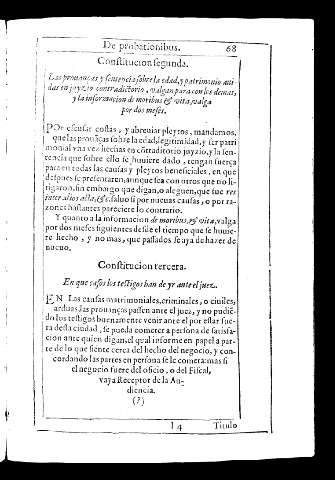 De probationibus. 68
Constitucion segunda.
Las prouanças y sentencia sobre la edad, y patrimonio aui-
das en juyzio contradictorio, valgan para con los demas,
y la informacion de moribus & vita, valga
por dos meses.
POr escusar costas, y abreuiar pleytos, mandamos,
que las prouanças sobre la edad, legitimidad, y ser patri
monial vna vez hechas en cõtraditorio juyzio, y la sen-
tencia que sobre ello se huuiere dado, tengan fuerça
para en todas las causas y pleytos beneficiales, en que
despues se presentaren, aunque sea con otros que no li-
tigaron, sin embargo que digan, o aleguen, que fue res
inter alios acta, &c. saluo si por nueuas causas, o por ra-
zones bastantes pareciere lo contrario.
Y quanto a la informacion de moribus, & vita, valga
por dos meses siguientes desde el tiempo que se huuie-
re hecho, y no mas, que passados se aya de hazer de
nueuo.
Constitucion tercera.
En que casos los testigos han de yr ante el juez.
EN Las causas matrimoniales, criminales, o ciuiles,
arduas, las prouanças passen ante el juez, y no pudiẽ-
do los testigos buenamente venir ante el por estar fue-
ra desta ciudad, se pueda cometer a persona de satisfa-
cion ante quien digan, el qual informe en papel a par-
te de lo que siente cerca del hecho del negocio, y con-
cordando las partes en persona se le cometa: mas si
el negocio fuere del oficio, o del Fiscal,
vaya Receptor de la Au-
diencia.
(?)
I 4 Titulo